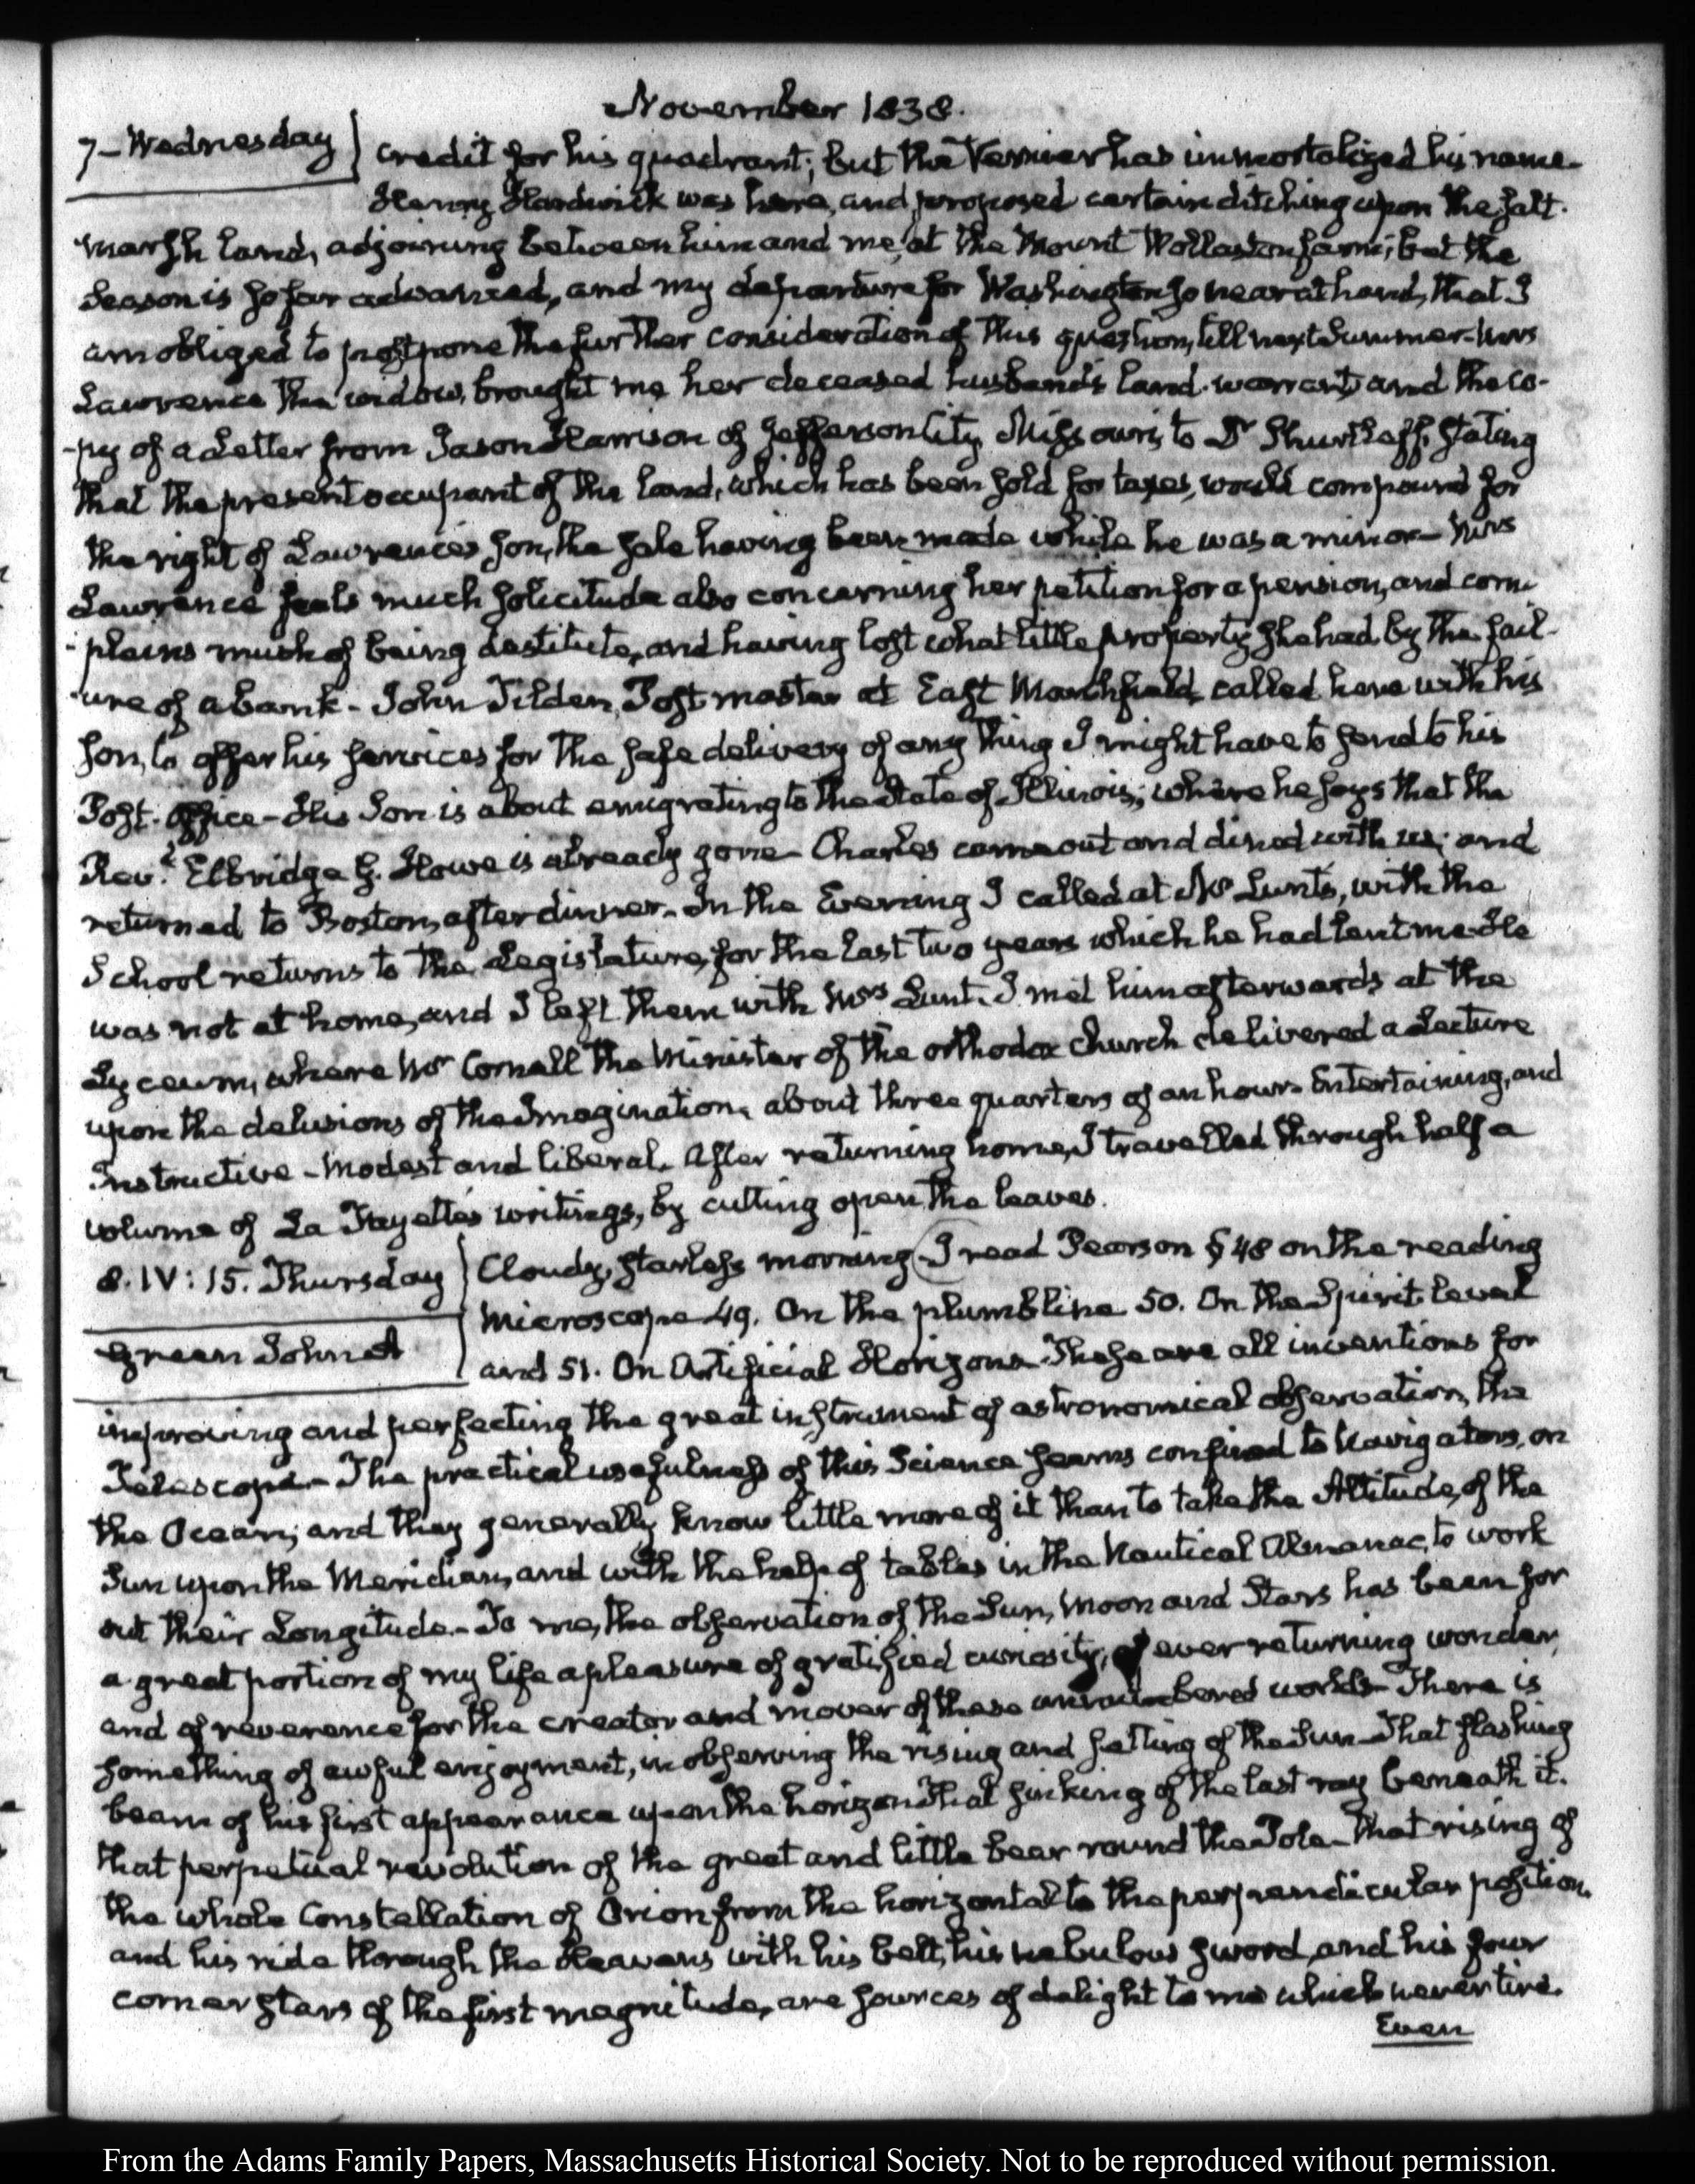 November 1838.
7 - Wednesday
credit for his quadrant; but the Vernier has immortalized his name.
Henny Hardwick was here, and proposed certain ditching upon the salt
marsh land, adjoining between him and me, at the Mount Wollaston farm; but the
Season is so far advanced, and my departure for Washington so near at hand, that I
am obliged to postpone the further consideration of this question, till next Summer - Mrs
Lawrence the widow, brought me her deceased husband's land-warrant, and the co-
-py of a Letter from Jason Harrison of Jefferson City, Missouri, to Dr Shurtleff, stating
that the present occupant of the land, which has been sold for taxes, would compound for
the right of Lawrence's son, the sale having been made while he was a minor - Mrs
Lawrence feels much solicitude also concerning her petition for a pension, and com-
-plains much of being destitute, and having lost what little property she had by the fail-
-ure of a bank - John Tilden, Post master at East Marshfield, called here with his
son, to offer his services for the safe delivery of any thing I might have to send to his
Post-Office - His Son is about emigrating to the State of Illinois; where he says that the
Revd. Elbridge G. Howe is already gone - Charles came out and dined with us; and
returned to Boston, after dinner - In the Evening I called at Mr Lunt's, with the
School returns to the Legislature, for the last two years which he had lent me - He
was not at home, and I left them with Mrs Lunt. I met him afterwards at the
Lyceum, where Mr Cornell the Minister of the orthodox church delivered a Lecture
upon the delusions of the Imagination, about three quarters of an hour - Entertaining, and
Instructive - Modest and liberal. After returning home, I travelled through half a
volume of La Fayette's writings, by cutting open the leaves.
8. IV: 15. Thursday
Cloudy, starless morning - I read Pearson § 48 on the reading
Microscope 49. On the plumb line 50. On the Spirit-level
Green John A
and 51. On Artificial Horizons - These are all inventions for
improving and perfecting the great instrument of astronomical observation, the
Telescope - The practical usefulness of this Science seems confined to Navigators, on
the Ocean; and they generally know little more of it than to take the Altitude, of the
Sun upon the Meridian, and with the help of tables in the Nautical Almanac, to work
out their Longitude - To me, the observation of the Sun, Moon and Stars has been for
a great portion of my life a pleasure of gratified curiosity, of ever returning wonder,
and of reverence for the creator and mover of these unnumbered worlds - There is
something of awful enjoyment, in observing the rising and setting of the Sun - That flashing
beam of his first appearance upon the horizon - That sinking of the last ray beneath it.
that perpetual revolution of the great and little bear round the Pole - that rising of
the whole Constellation of Orion from the horizontal to the perpendicular position,
and his ride through the Heavens with his belt, his nebulous sword, and his four
corner stars of the first magnitude, are sources of delight to me which never tire.
Even
From the Adams Family Papers, Massachusetts Historical Society. Not to be reproduced without permission.